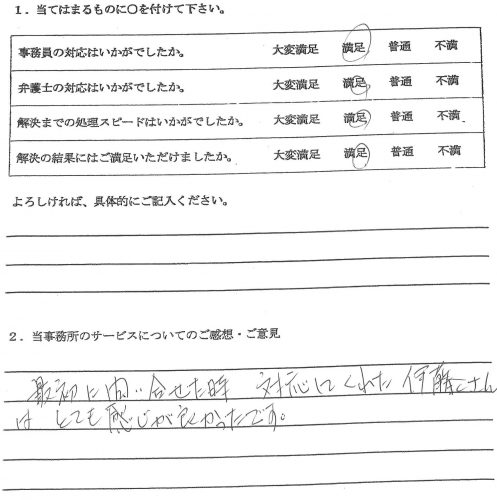 1．当てはまるものに○を付けて下さい。
事務員の対応はいかがでしたか。 大変満足 満足 普通 不満
弁護士の対応はいかがでしたか。 大変満足 満足 普通 不満
解決までの処理スピードはいかがでしたか。 大変満足 満足 普通 不満
解決の結果にはご満足いただけましたか。 大変満足 満足 普通 不満
よろしければ、具体的にご記入ください。
2．当事務所のサービスについてのご感想・ご意見
最初に問い合せた時 対応してくれた 伊藤さん
は とても感じが良かったです。